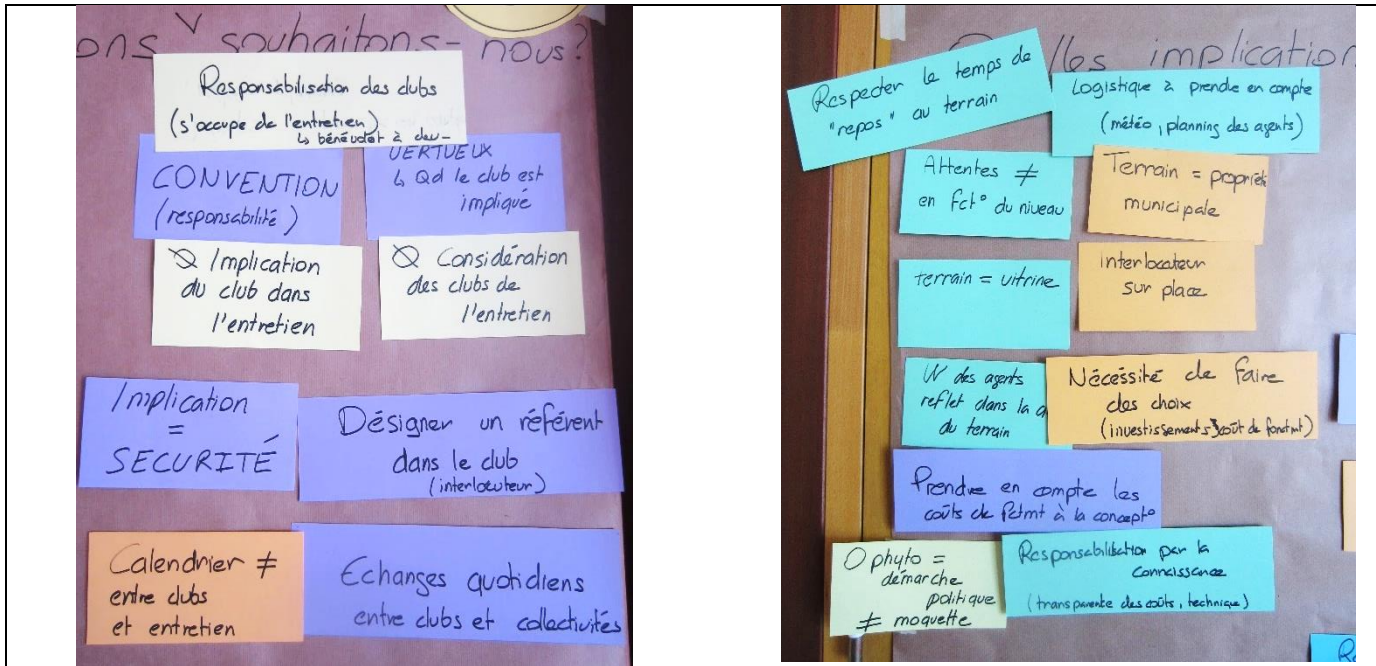 ons souhaitons-nous?
Responsabilisation des clubs
(s'occupe de l'entretien)
↳ bénévolat à deu-
CONVENTION
(responsabilité)
VERTUEUX
↳ Qd le club est
impliqué
Ø Implication
du club dans
l'entretien
Ø Considération
des clubs de
l'entretien
Implication
=
SECURITÉ
Désigner un référent
dans le club
(interlocuteur)
Calendrier ≠
entre clubs
et entretien
Echanges quotidiens
entre clubs et collectivités
lles implication
Respecter le temps de
"repos" au terrain
Logistique à prendre en compte
(météo, planning des agents)
Attentes ≠
en fct° du niveau
Terrain = propriété
municipale
terrain = vitrine
Interlocuteur
sur place
des agents
reflet dans la
du terrain
Nécéssité de faire
des choix
(investissements coût de fonctmt)
Prendre en compte les
coûts de fctmt à la concept°
O phyto =
démarche
politique
≠ moquette
Responsabilisation par la
connaissance
(transparente des coûts, technique)